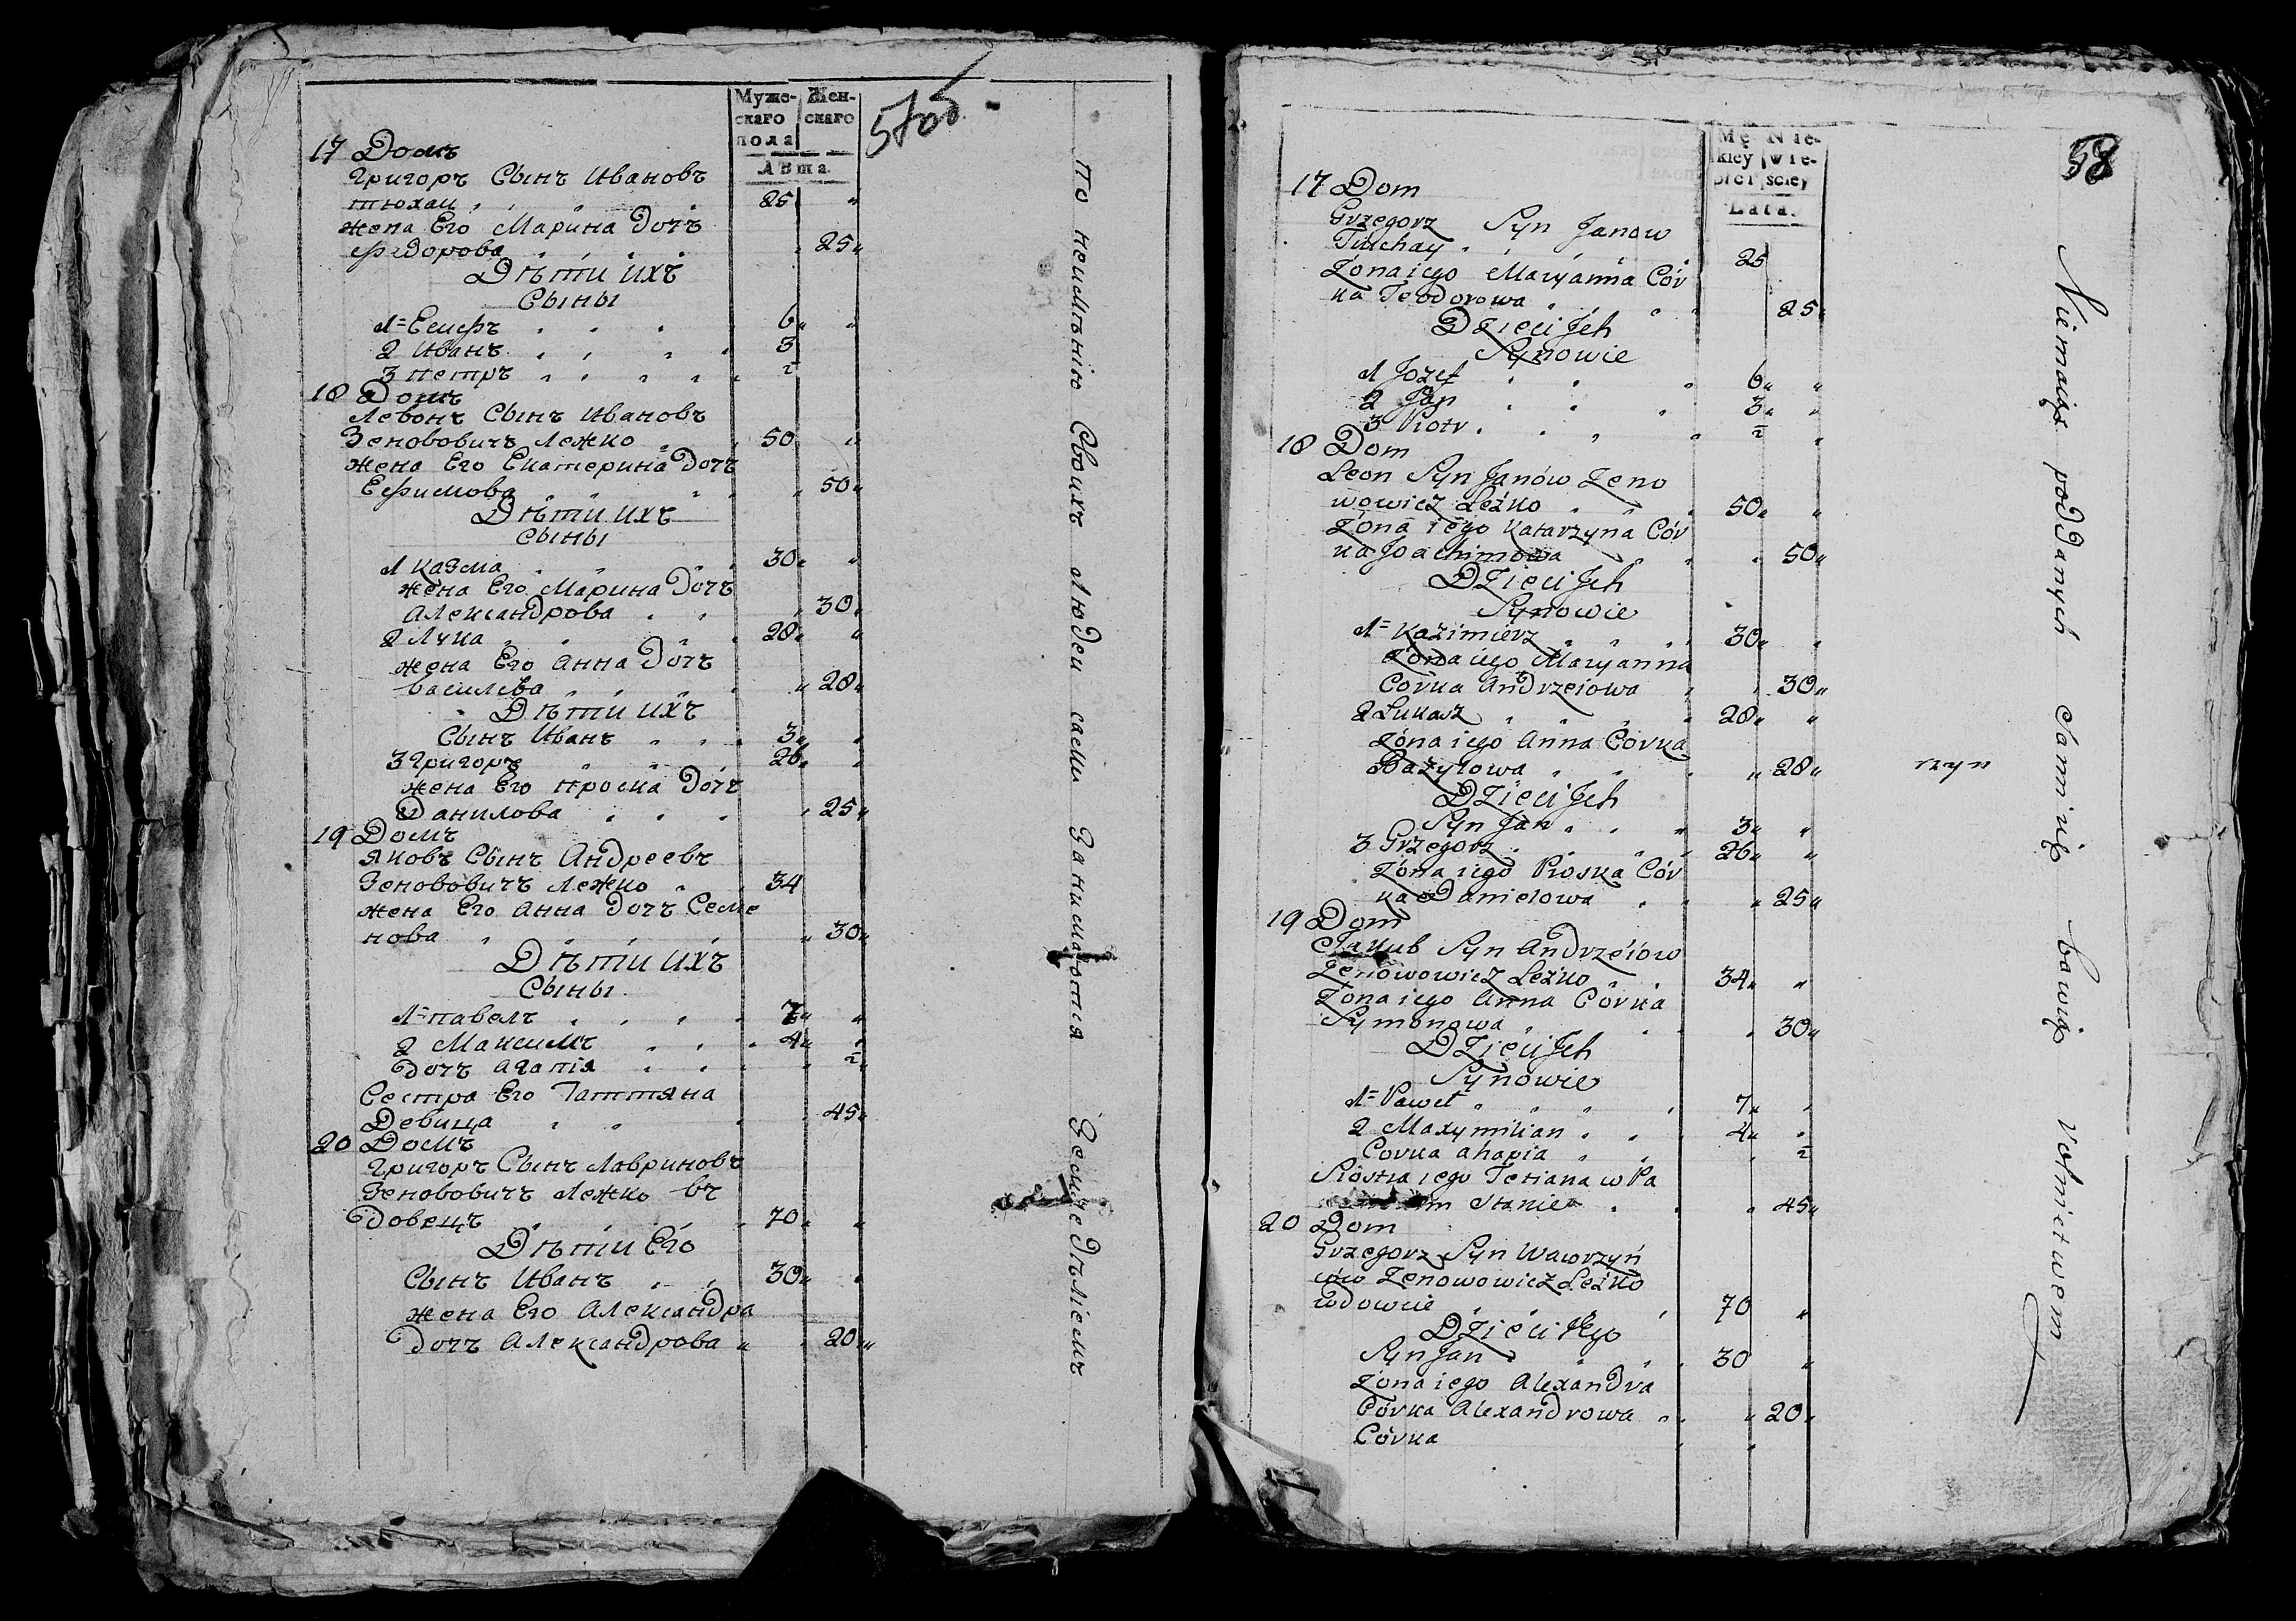 Муже-
скаго
пола
Жен-
скаго
Лѣта.
57об
17 Домъ
Григоръ Сынъ Ивановъ
тюхай 25
жена Его Марина Дочъ
Федорова 25
Дѣти ихъ
Сыны
1 Есифъ 6
2 Иванъ 3
3 петръ ½
18 Домъ
Левонъ Сынъ Ивановъ
Зенововичъ Лежко 50
жена Его Екатерина Дочъ
Ефимова 50
Дѣти ихъ
Сыны
1 казма 30
жена Его Марина Дочъ
Александрова 30
2 Лука 28
жена Его Анна Дочъ
василева 28
Дѣти ихъ
Сынъ Иванъ 3
3 Григоръ 26
жена Его проска Дочъ
Данилова 25
19 Домъ
Яковъ Сынъ Андреевъ
Зенововичъ Лежко 34
жена Его Анна дочъ Семе
нова 30
Дѣти ихъ
Сыны
1 павелъ 7
2 Максимъ 4
дочъ Агапія ½
Сестра Его Таттяна
Девица 45
20 Домъ
Григоръ Сынъ Лавриновъ
Зенововичъ Лежко въ
довецъ 70
Дѣти Его
Сынъ Иванъ 30
жена Его Александра
дочъ Александрова 20
по неимѣнію Своихъ людей сами Занимаются Земледѣліемъ
58
Mę
kiey
płci
Nie-
wie-
sciey
Lata.
17 Dom
Grzegorz Syn Janow
Tiuchay 25
Żona iego Maryanna Cór
ka Teodorowa 25
Dzieci Jch
Synowie
1 Jozef 6
2 Jan 3
3 Piotr ½
18 Dom
Leon Syn Janów Zeno
wowicz Leżko 50
Żona iego Katarzyna Cór
ka Joachimowa 50
Dzieci Jch
Synowie
1 Kazimierz 30
Żona iego Maryanna
Córka Andrzeiowa 30
2 Łukasz 28
Żona iego Anna Córka
Bazylowa 28
Dzieci Jch
Syn Jan 3
3 Grzegorz 26
Żona iego Proska Cór
ka Danielowa 25
19 Dom
Jakub Syn Andrzeiów
Zenowowicz Leżko 34
Żona iego Anna Córka
Symonowa 30
Dzieci Jch
Synowie
1 Paweł 7
2 Maxymilian 4
Córka Ahapia ½
Siostra iego Tetiana w Pa
Stanie 45
20 Dom
Grzegorz Syn Wawrzyń
ców Zenowowicz Leżko
wdowiec 70
Dzieci Jego
Syn Jan 30
Żona iego Alexandra
Córka Alexandrowa 20
Córka
Niemaiąc poddanych sami się bawią rolnictwem